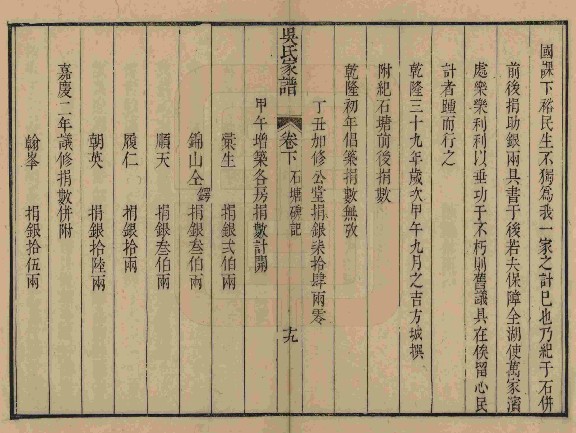 國課下裕民生不獨為我一家之計已也乃紀于石併
前後捐助銀兩具書于後若夫保障全湖使萬家濱
處樂樂利利以垂功于不朽則舊議具在俟留心民
計者踵而行之
乾隆三十九年歲次甲午九月之吉方城撰
附紀石塘前後捐數
乾隆初年倡築捐數無攷
丁丑加修公堂捐銀柒拾肆兩零
甲午增築各房捐數計開
吳氏家譜
卷下
石塘碑記
十九
生 捐銀弍伯兩
錦山仝 捐銀叁伯兩
順天 捐銀叁伯兩
履仁 捐銀拾兩
朝英 捐銀拾陸兩
嘉慶二年議修捐數併附
翰峯 捐銀拾伍兩